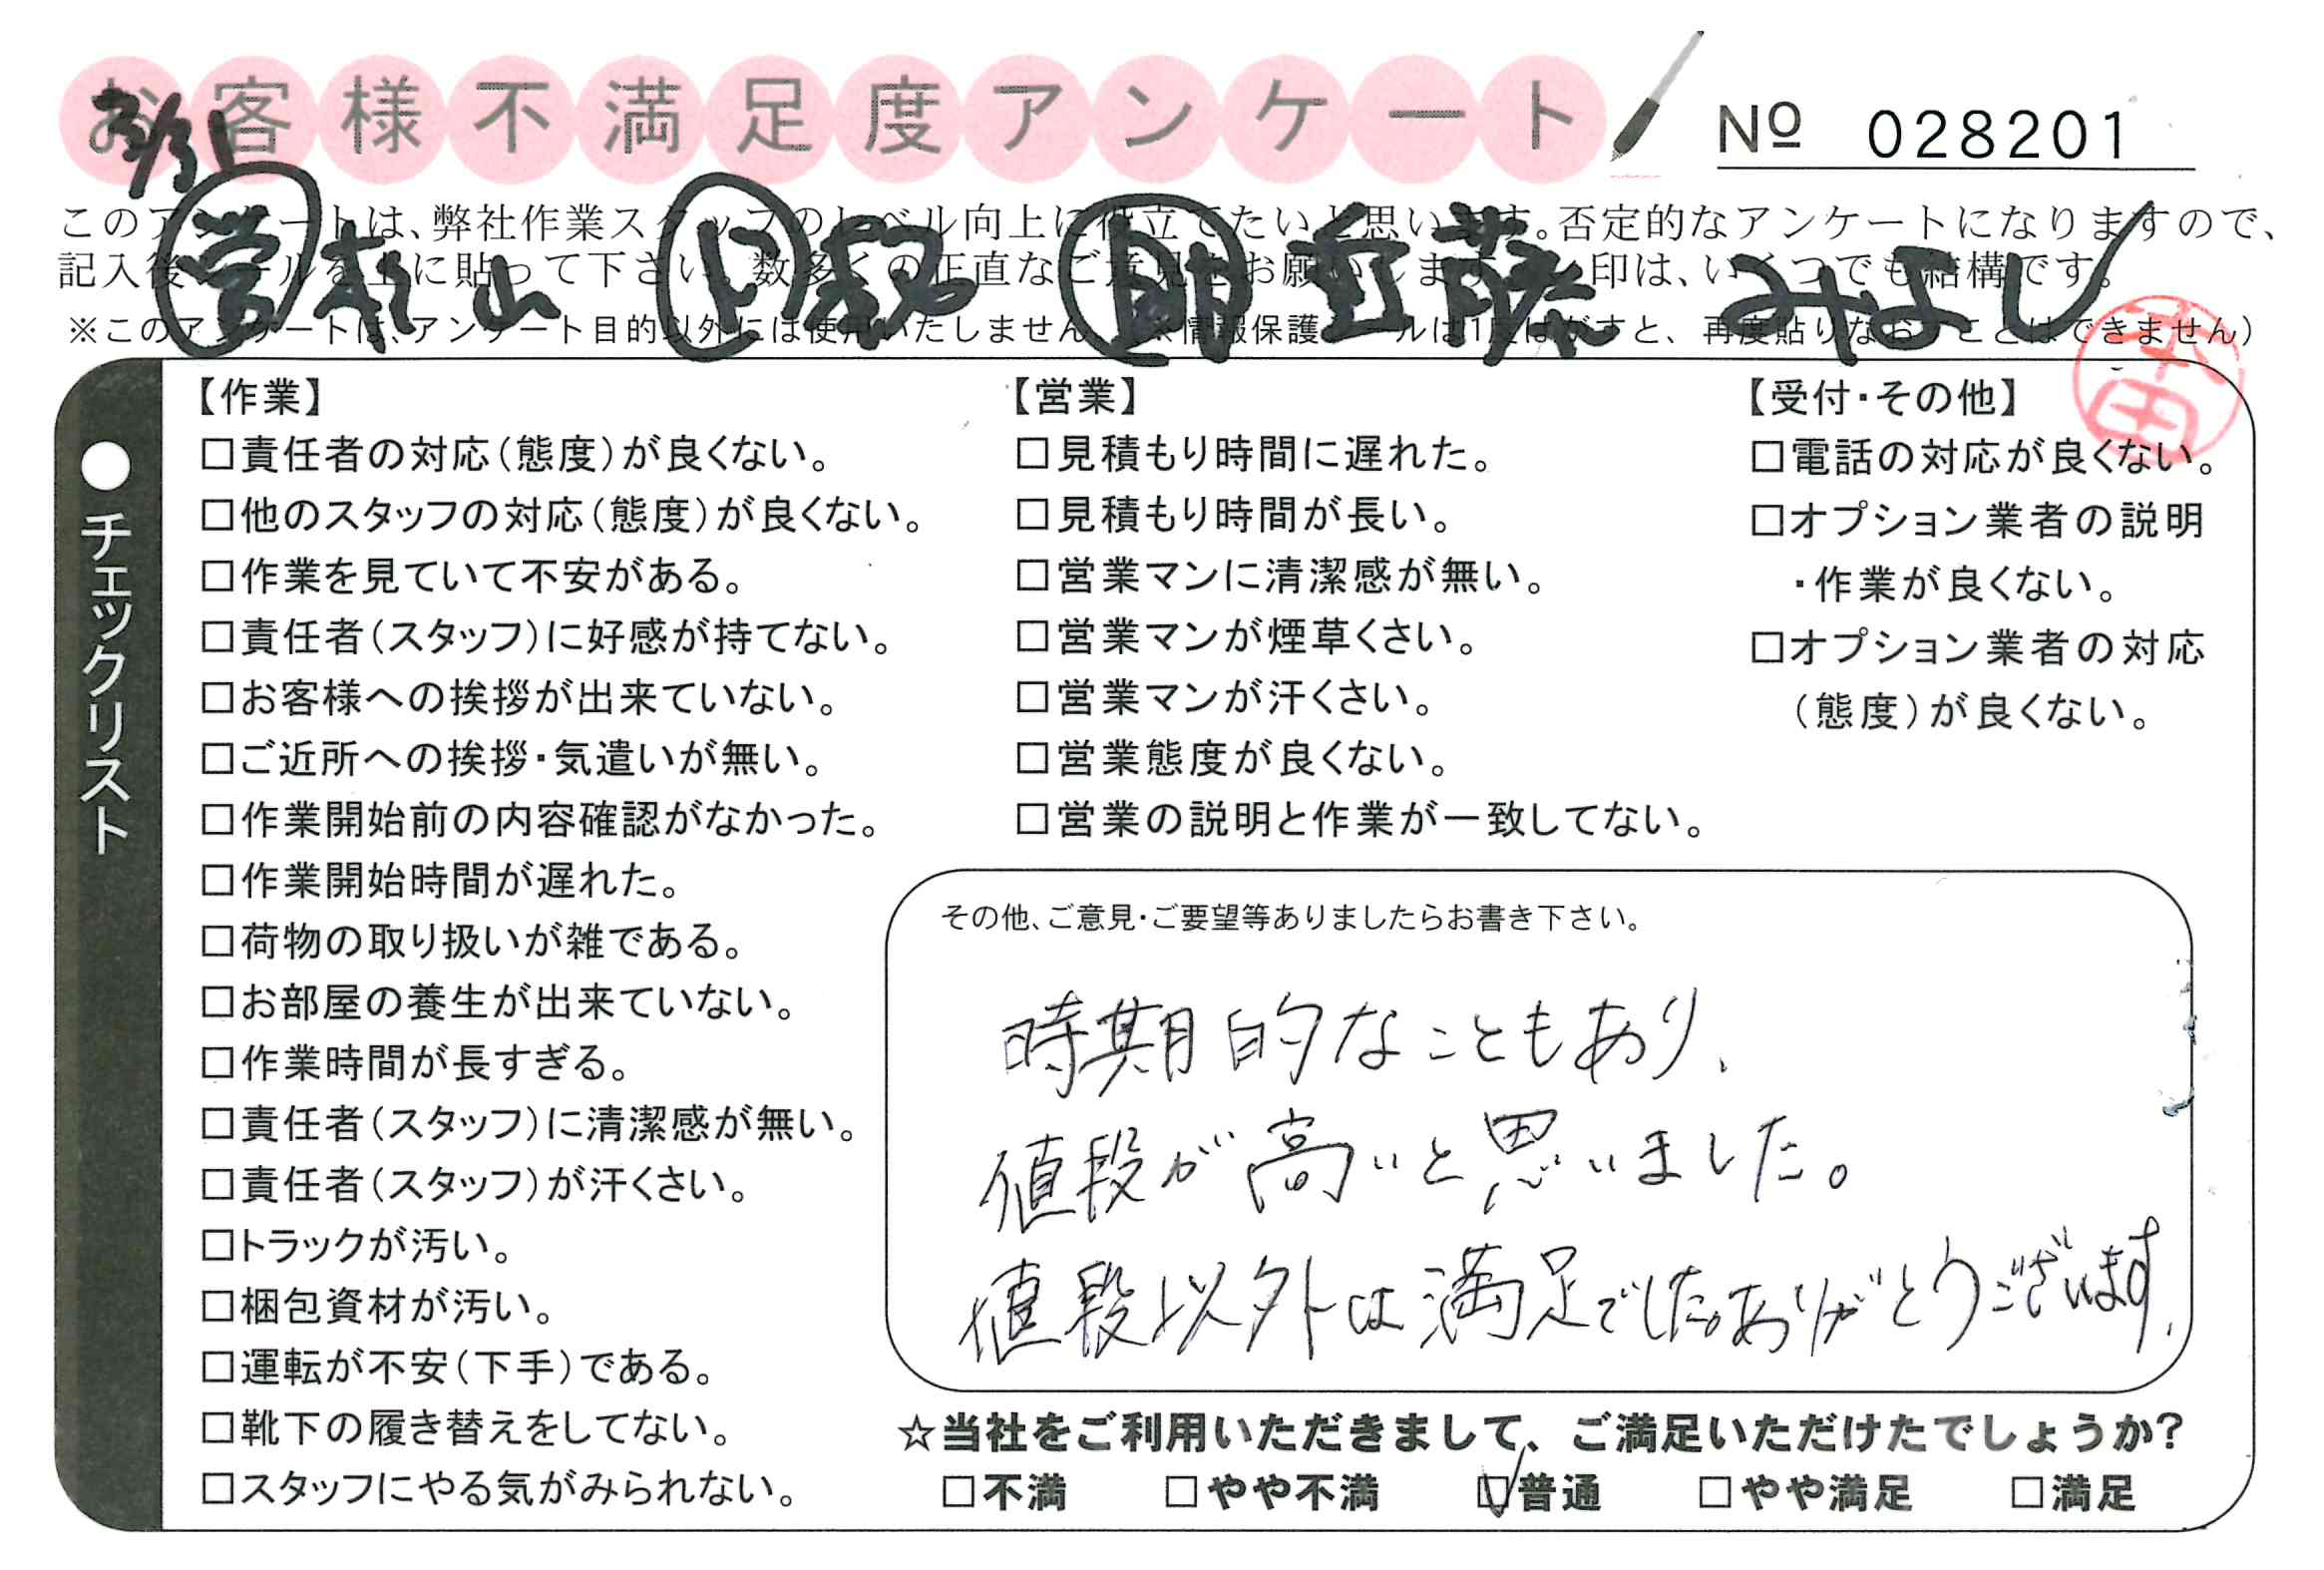 お客様不満足度アンケート
No 028201
3/31
営 杉山 ト 山 助 斉藤 みよし
このアンケートは、弊社作業スタッフのレベル向上に役立てたいと思います。否定的なアンケートになりますので、
記入後シールを上に貼って下さい。数多くの正直なご意見をお願いします。レ印は、いくつでも結構です。
※このアンケートは、アンケート目的以外には使用いたしません。※情報保護シールは1度はがすと、再度貼りなおすことはできません)
本田
●チェックリスト
【作業】
□責任者の対応(態度)が良くない。
□他のスタッフの対応(態度)が良くない。
□作業を見ていて不安がある。
□責任者(スタッフ)に好感が持てない。
□お客様への挨拶が出来ていない。
□ご近所への挨拶・気遣いが無い。
□作業開始前の内容確認がなかった。
□作業開始時間が遅れた。
□荷物の取り扱いが雑である。
□お部屋の養生が出来ていない。
□作業時間が長すぎる。
□責任者(スタッフ)に清潔感が無い。
□責任者(スタッフ)が汗くさい。
□トラックが汚い。
□梱包資材が汚い。
□運転が不安(下手)である。
□靴下の履き替えをしてない。
□スタッフにやる気がみられない。
【営業】
□見積もり時間に遅れた。
□見積もり時間が長い。
□営業マンに清潔感が無い。
□営業マンが煙草くさい。
□営業マンが汗くさい。
□営業態度が良くない。
□営業の説明と作業が一致してない。
【受付・その他】
□電話の対応が良くない。
□オプション業者の説明
・作業が良くない。
□オプション業者の対応
(態度)が良くない。
その他、ご意見・ご要望等ありましたらお書き下さい。
時期的なこともあり、
値段が高いと思いました。
値段以外は満足でした。ありがとうございます。
☆当社をご利用いただきまして、ご満足いただけたでしょうか?
□不満 □やや不満 ☑普通 □やや満足 □満足